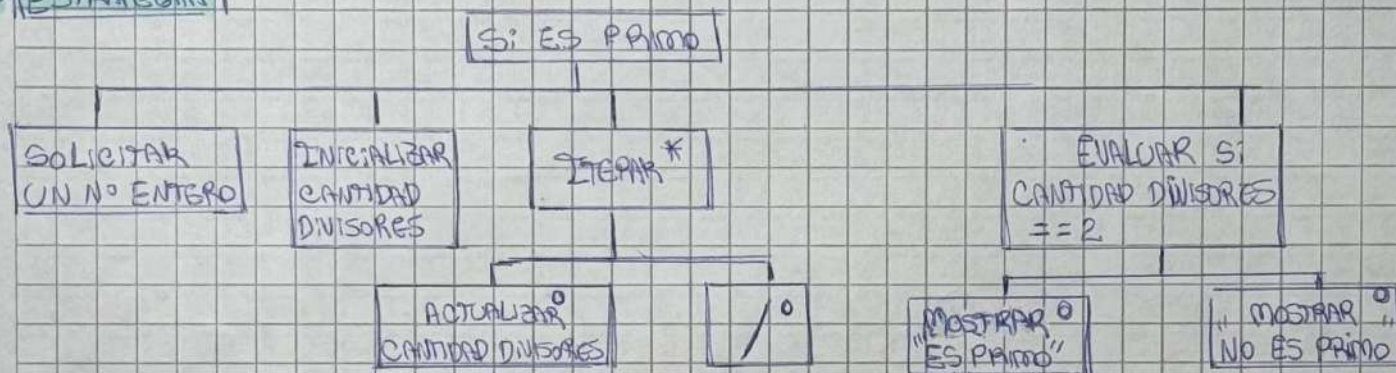 Si ES PRIMO
SOLICITAR
UN Nº ENTERO
INICIALIZAR
CANTIDAD
DIVISORES
ITERAR *
EVALUAR Si
CANTIDAD DIVISORES
==2
ACTUALIZAR º
CANTIDAD DIVISORES
/ º
"MOSTRAR º
ES PRIMO"
" MOSTRAR º "
NO ES PRIMO